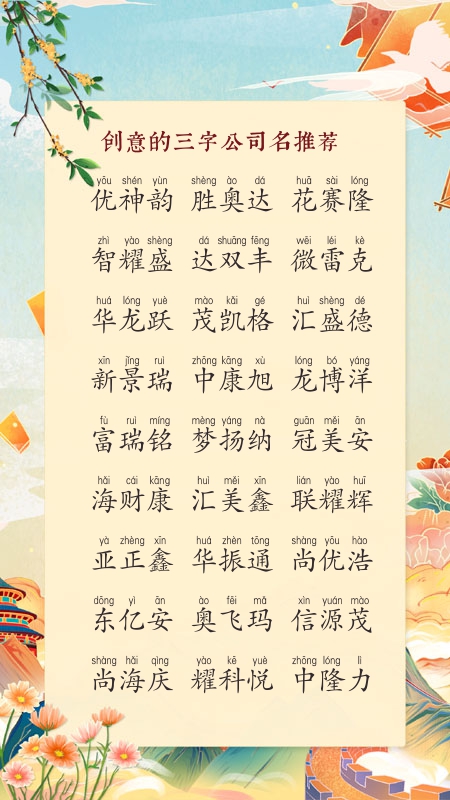 创意的三字公司名推荐
yōu shén yùn shèng ào dá huā sài lóng
优神韵 胜奥达 花赛隆
zhì yào shèng dá shuāng fēng wēi léi kè
智耀盛 达双丰 微雷克
huá lóng yuè mào kǎi gé huì shèng dé
华龙跃 茂凯格 汇盛德
xīn jǐng ruì zhōng kāng xù lóng bó yáng
新景瑞 中康旭 龙博洋
fù ruì míng mèng yáng nà guān měi ān
富瑞铭 梦扬纳 冠美安
hǎi cái kāng huì měi xīn lián yào huī
海财康 汇美鑫 联耀辉
yà zhèng xīn huá zhèn tōng shàng yōu hào
亚正鑫 华振通 尚优浩
dōng yì ān ào fēi mǎ xìn yuán mào
东亿安 奥飞玛 信源茂
shàng hǎi qìng yào kē yuè zhōng lóng lì
尚海庆 耀科悦 中隆力